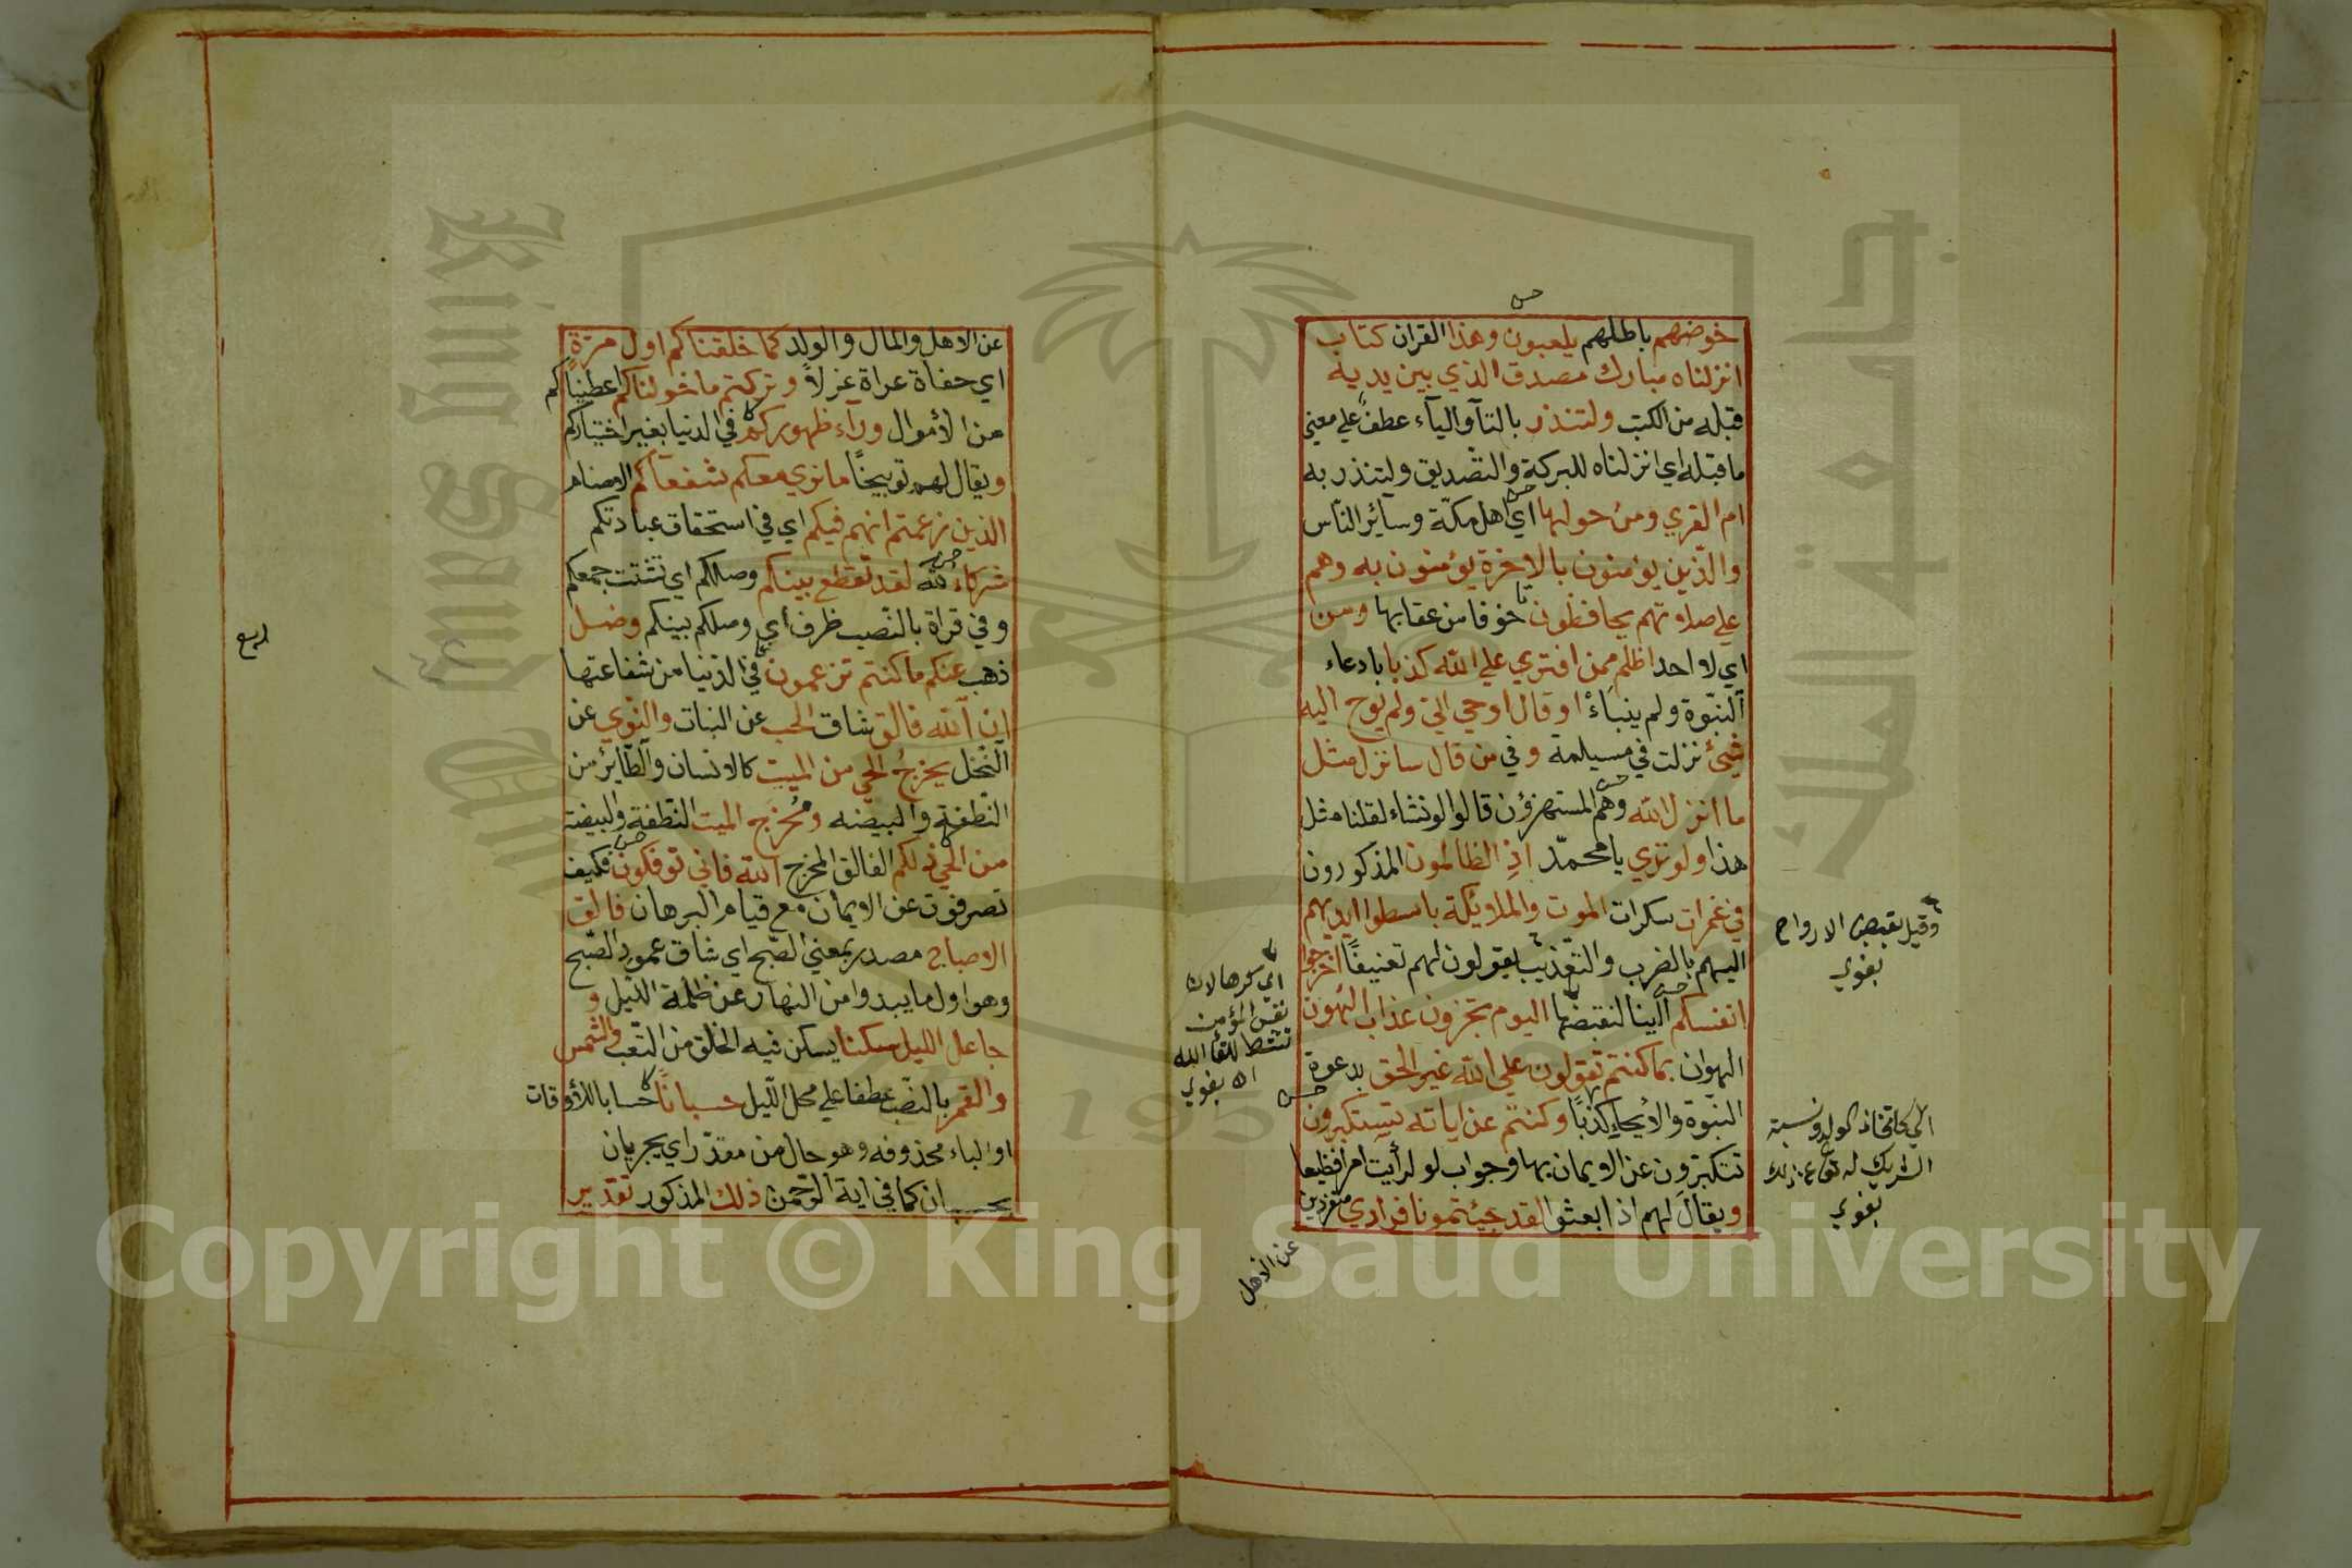 خوضهم باطلهم يلعبون وهذا القران كتاب
انزلناه مبارك مصدق الذي بين يديه
قبله من الكتب ولتنذر بالتآ واليآء عطف علي معني
ما قبله اي انزلناه للبركة والتصديق ولتنذر به
ام القري ومن حولها اي اهل مكّة وسآئر النّاس
والذّين يؤمنون بالاخرة يؤمنون به وهم
علي صلاتهم يحافظون خوفا من عقابها ومن
اي لا احد اظلم ممن افتري علي الله كذبا بادعاء
النبّوة ولم ينبأ او قال اوحي اليّ ولم يوح اليه
شيئ نزلت في مسيلمة وفي من قال سانزل مثل
ما انزل الله وهم المستهزؤن قالوا لو نشاء لقلنا مثل
هذا ولو تري يا محمّد اذ الظالمون المذكورون
في غمرات سكرات الموت والملايكة باسطوا ايديهم
اليهم بالضرب والتعذيب يقولون لهم تعنيفًا اخرجوا
انفسكم الينا لنقبضها اليوم تجزون عذاب الهون
الهوان بما كنتم تقولون علي الله غير الحق بدعوة
النبّوة والايحاء كذبًا وكنتم عن اياته تستكبرون
تتكبرون عن الايمان بها وجواب لو لرأيت امرا فظيعا
ويقال لهم اذا بعثوا لقد جيئتمونا فرادي منفردين
عن الاهل
وقيل بقبض الارواح
بغوي
اي كرها لان
نفس المؤمن
تنشط للقأ الله
اه بغوي
اي كاتخاذ الولد ونسبة
الشريك له تعا عن ذلك
بغوي
عن الاهل والمال والولد كما خلقناكم اول مرّة
اي حفاة عراة غرلاً وتركتم ما خولناكم اعطيناكم
من الأموال ورآء ظهوركم في الدنيا بغير اختياركم
ويقال لهم توبيخًا ما نري معكم شفعآكم الاصنام
الذين زعمتم انهم فيكم اي في استحقاق عبادتكم
شركاء لله لقد تقطع بينكم وصلكم اي تشتت جمعكم
وفي قراة بالنّصب ظرف اي وصلكم بينكم وضل
ذهب عنكم ما كنتم تزعمون في الدّنيا من شفاعتها
ان الله فالق شاق الحب عن النبات والنوي عن
النّخل يخرج الحي من الميت كالانسان والطّاير من
النّطفة والبيضه ومخرج الميت النّطفة والبيضة
من الحي ذلكم الفالق المخرج الله فاني توفكون فكيف
تصرفون عن الايمان مع قيام البرهان فالق
الاصباح مصدر بمعني الصّبح اي شاق عمود الصّبح
وهو اول ما يبدوا من النهار عن ظلمة الليل و
جاعل الليل سكنا يسكن فيه الخلق من التّعب والشمس
والقمر بالنصّب عطفا علي محل الّليل حسبانًا حسابا للأوقات
او الباء محذوفه وهو حال من مقدّر اي يجريان
بحسبان كما في اية الرّحمن ذلك المذكور تقدير
Copyright © King Saud University
King Saud
1957